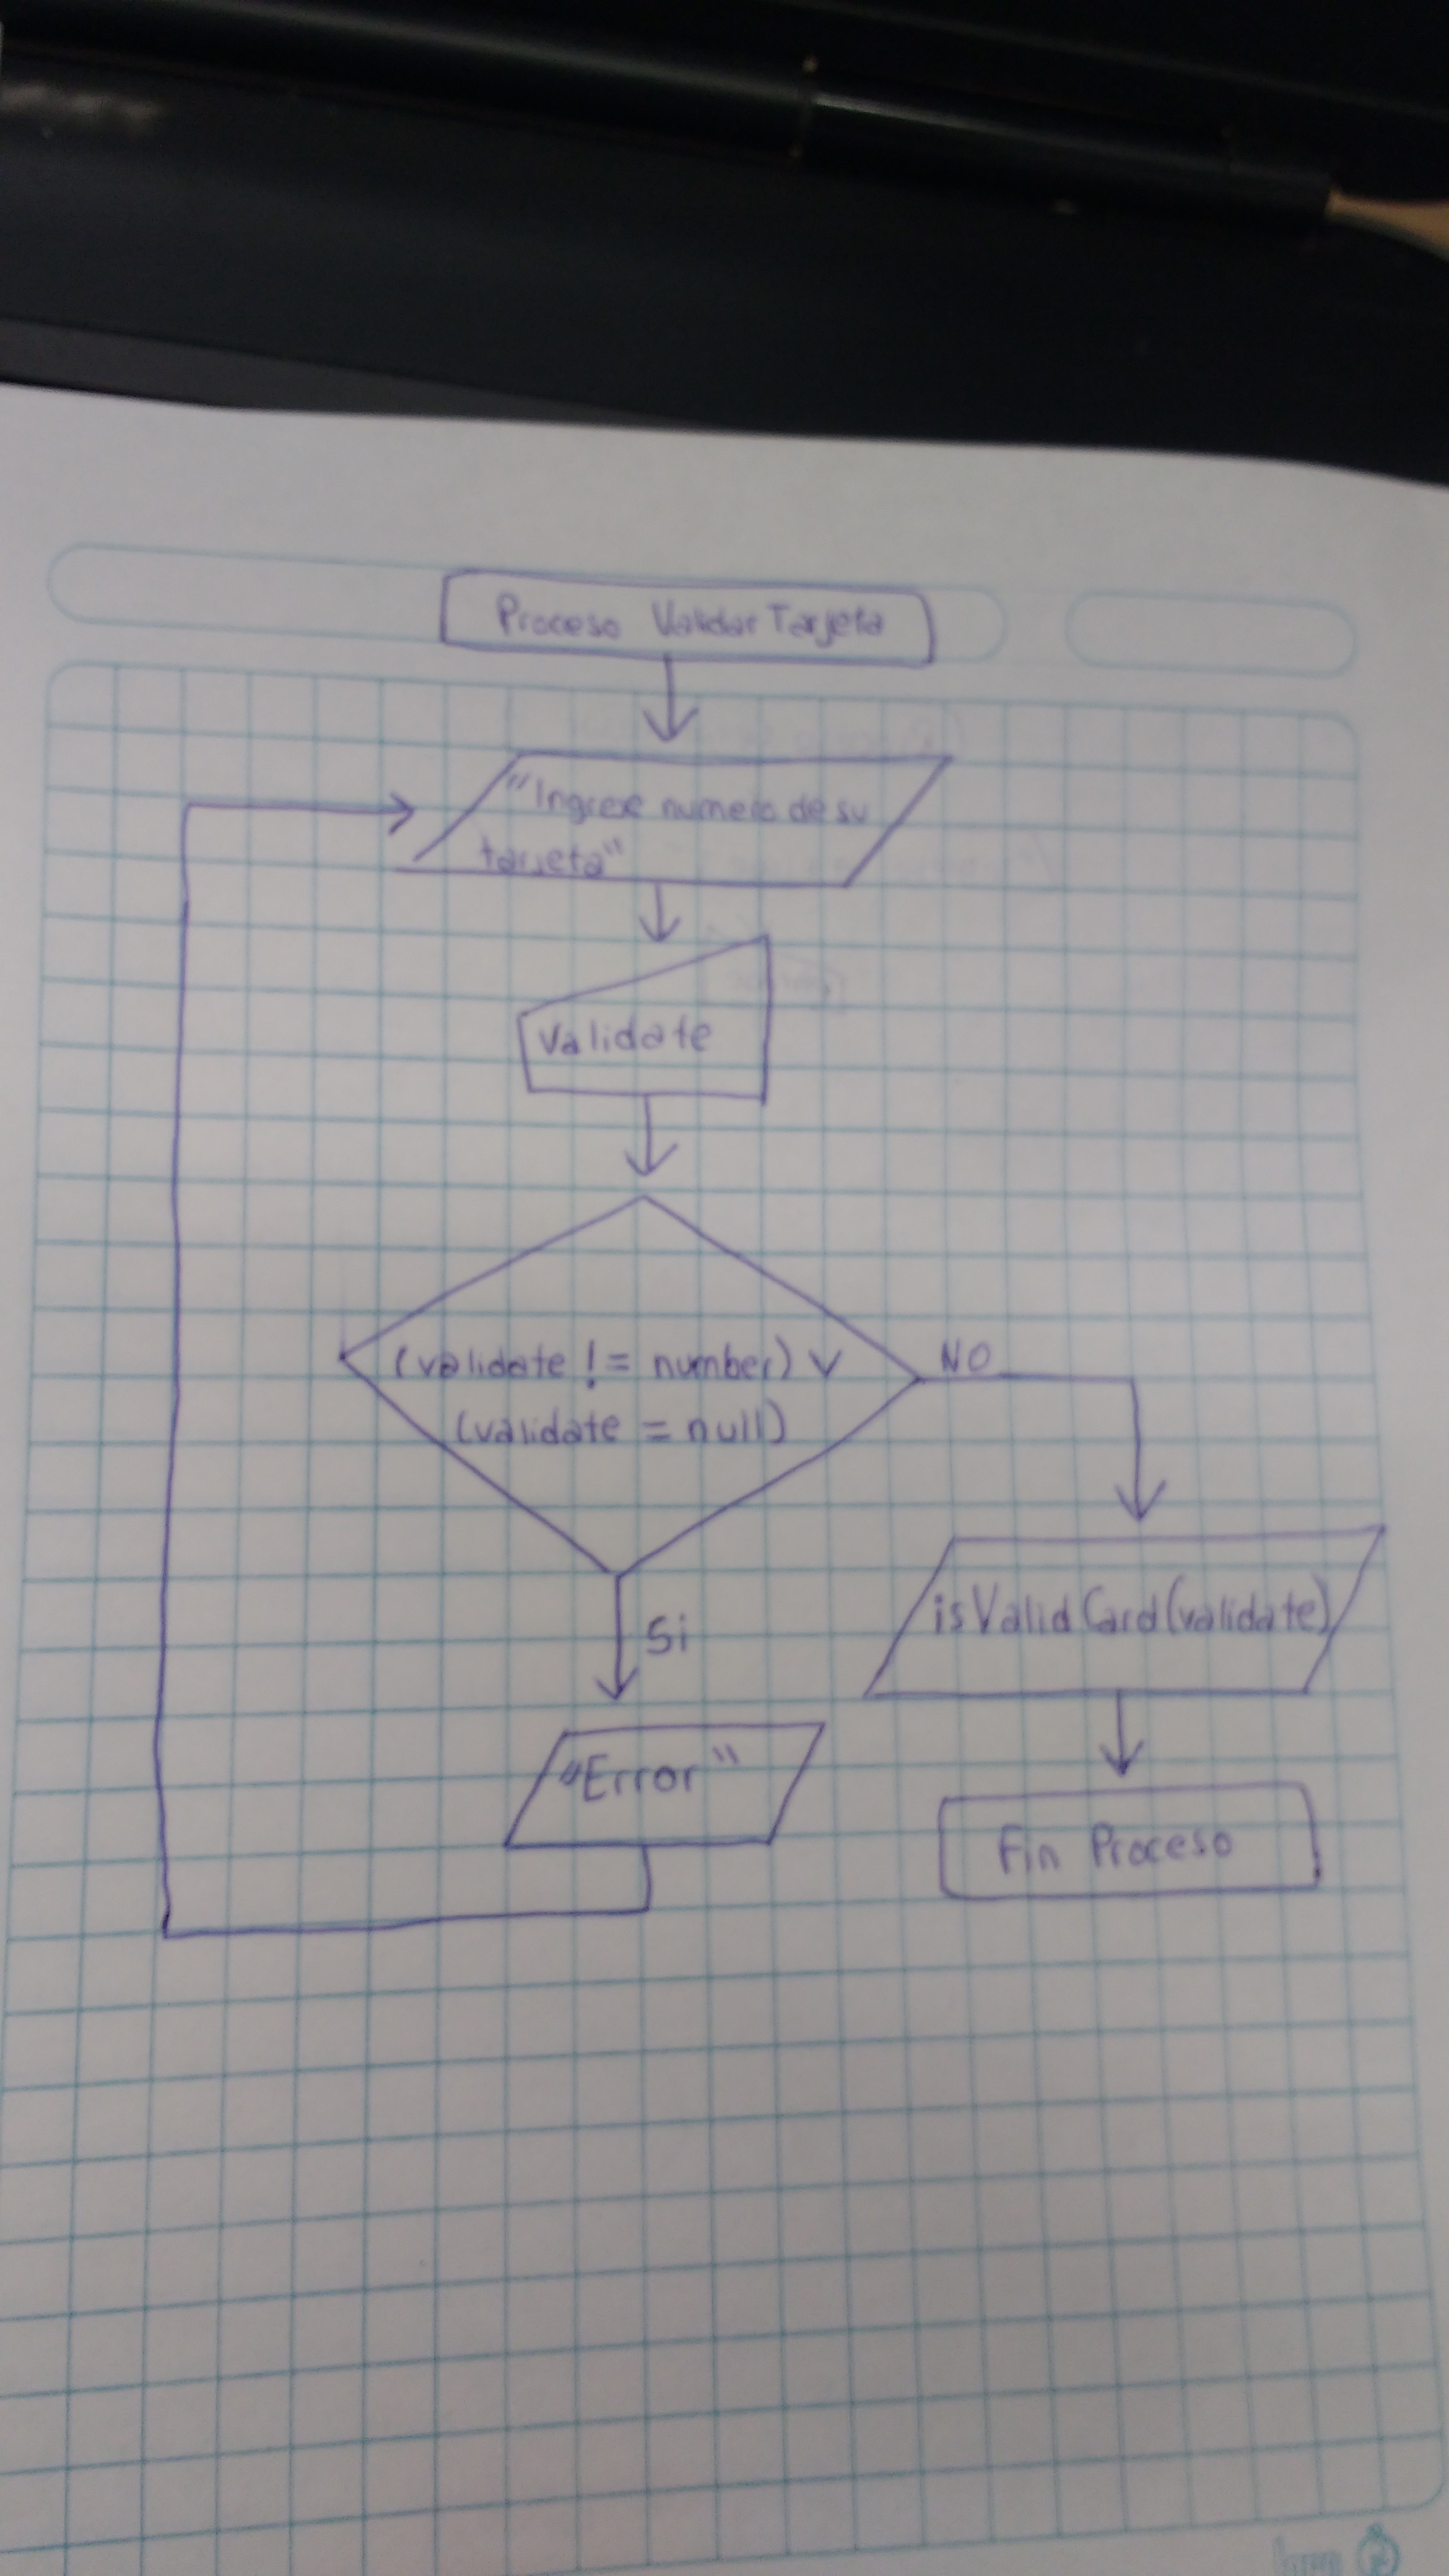 Proceso Validar Tarjeta
"Ingrese numero de su
tarjeta"
validate
(validate != number) V
(validate = null)
NO
Si
isValidCard(validate)
"Error"
Fin Proceso